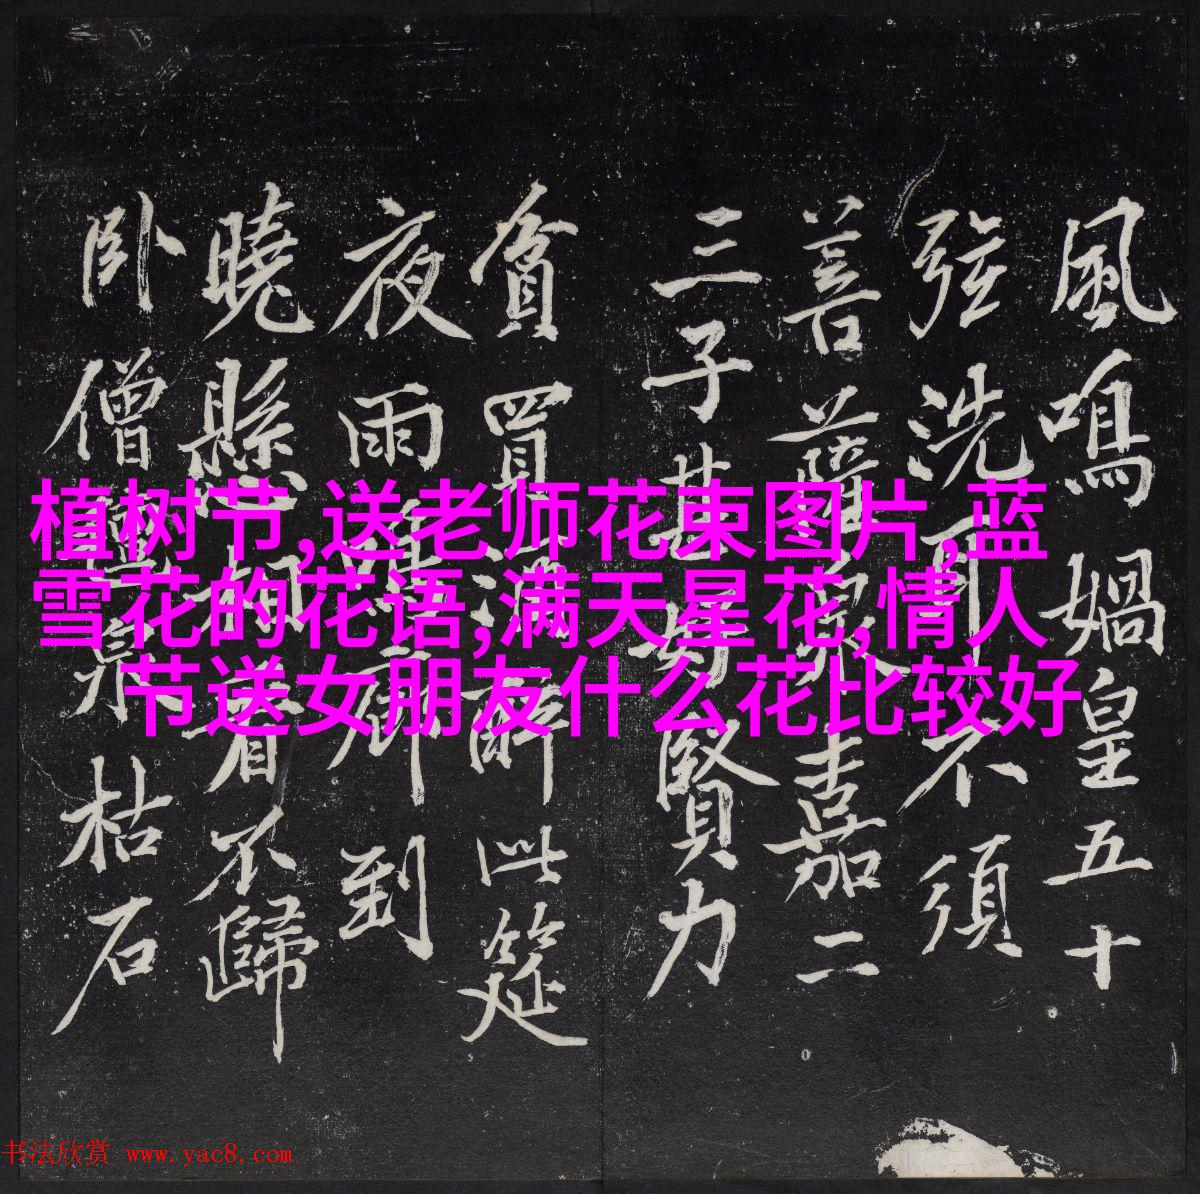 風鳴媧皇五十
弦洗耳不須
菩薩泉嘉二
三子甚好賢力
貧買酒醉此筵
夜雨鳴廊到
曉懸相看不歸
臥僧氈泉枯石
植树节,送老师花束图片,蓝
雪花的花语,满天星花,情人
节送女朋友什么花比较好
书法欣赏 www.yac8.com